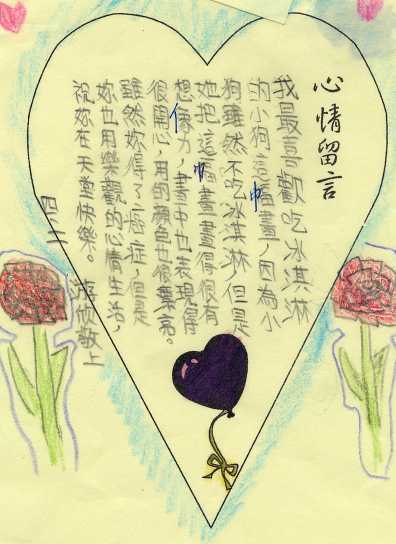 心情留言
我最喜歡吃冰淇淋
的小狗這幅畫了,因為小
狗雖然不吃冰淇淋,但是
她把這幅畫畫得很有
想像力,畫中也表現得
很開心,用的顏色也很漂亮。
雖然妳得了癌症,但是
妳也用樂觀的心情生活,
祝妳在天堂快樂。
四二 敬上